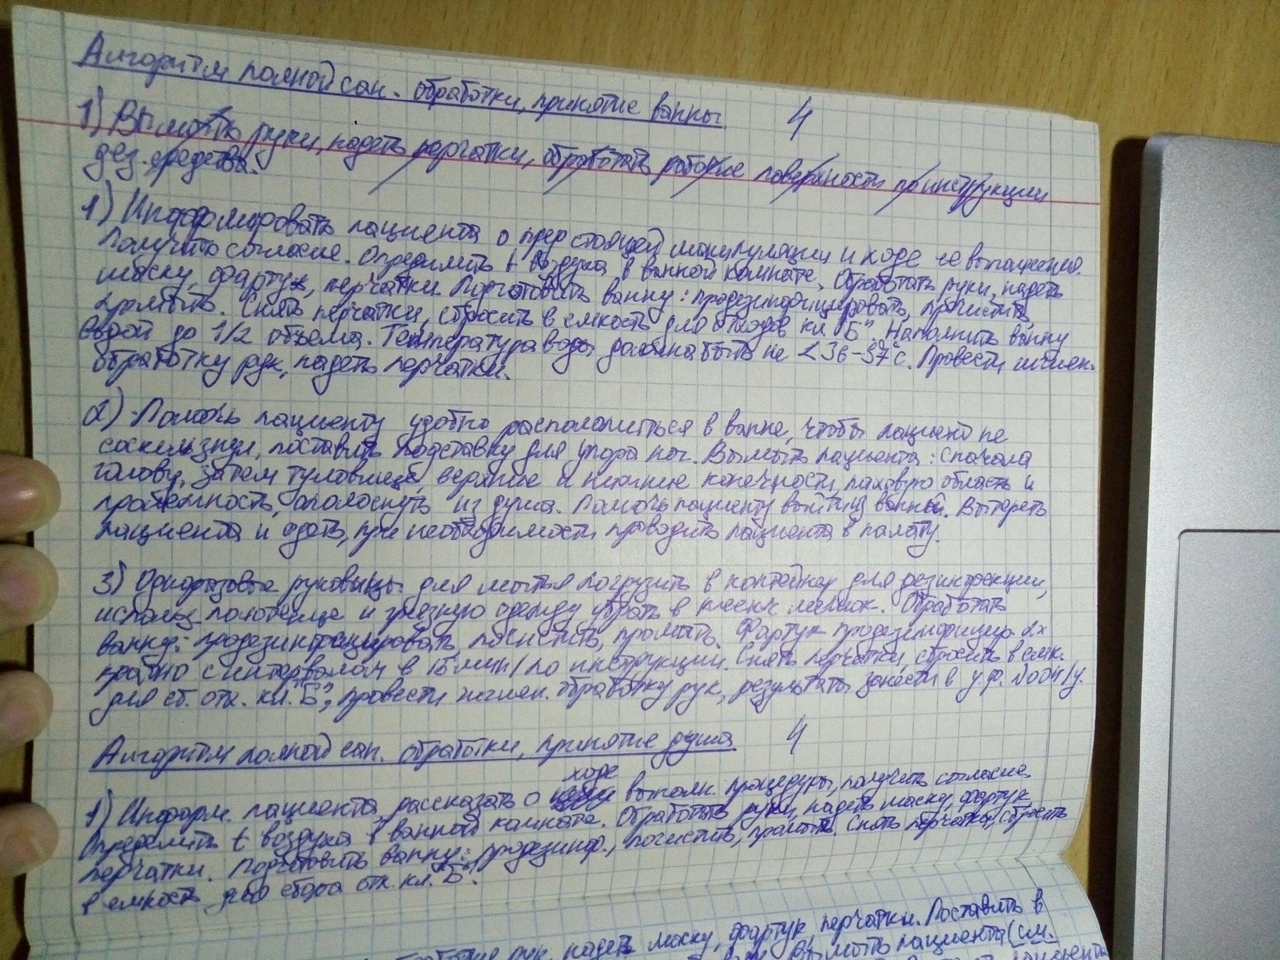 Алгоритм полной сан. обработки, принятие ванны 4
1) Вымыть руки, надеть перчатки, обработать рабочие поверхности по инструкции
дез. средства.
1) Информировать пациента о предстоящей манипуляции и ходе её выполнения.
Получить согласие. Определить t воздуха в ванной комнате. Обработать руки, надеть
маску, фартук, перчатки. Подготовить ванну: продезинфицировать, почистить,
промыть. Снять перчатки, сбросить в емкость для отходов кл. "Б". Наполнить ванну
водой до 1/2 объема. Температура воды должна быть не < 36-37°С. Провести гигиен.
обработку рук, надеть перчатки.
2) Помочь пациенту удобно расположиться в ванне, чтобы пациент не
соскользнул, поставить подставку для упора ног. Вымыть пациента: сначала
голову, затем туловище верхние и нижние конечности, паховую область и
промежность, ополоснуть из душа. Помочь пациенту выйти из ванной. Вытереть
пациента и одеть, при необходимости проводить пациента в палату.
3) Одноразовые руковицы для мытья погрузить в контейнер для дезинфекции,
использ. полотенце и грязную одежду убрать в мешок. Обработать
ванну: продезинфицировать, почистить, промыть. Фартук продезинфицир. 2х
кратно с интервалом в 15 мин/по инструкции. Снять перчатки, сбросить в емк.
для сб. отх. кл. "Б", провести гигиен. обработку рук, результаты занести в у.ф. №004/у.
Алгоритм полной сан. обработки, принятие душа 4
ходе
1) Информ. пациента, рассказать о выполн. процедуры, получить согласие
Определить t воздуха в ванной комнате. Обработать руки, надеть маску, фартук
перчатки. Подготовить ванну: продезинф., почистить, промыть. Снять перчатки, сбросить
в емкость для сбора отх. кл. "Б".
рук, надеть маску, фартук перчатки. Поставить в
Вымыть пациента (см.